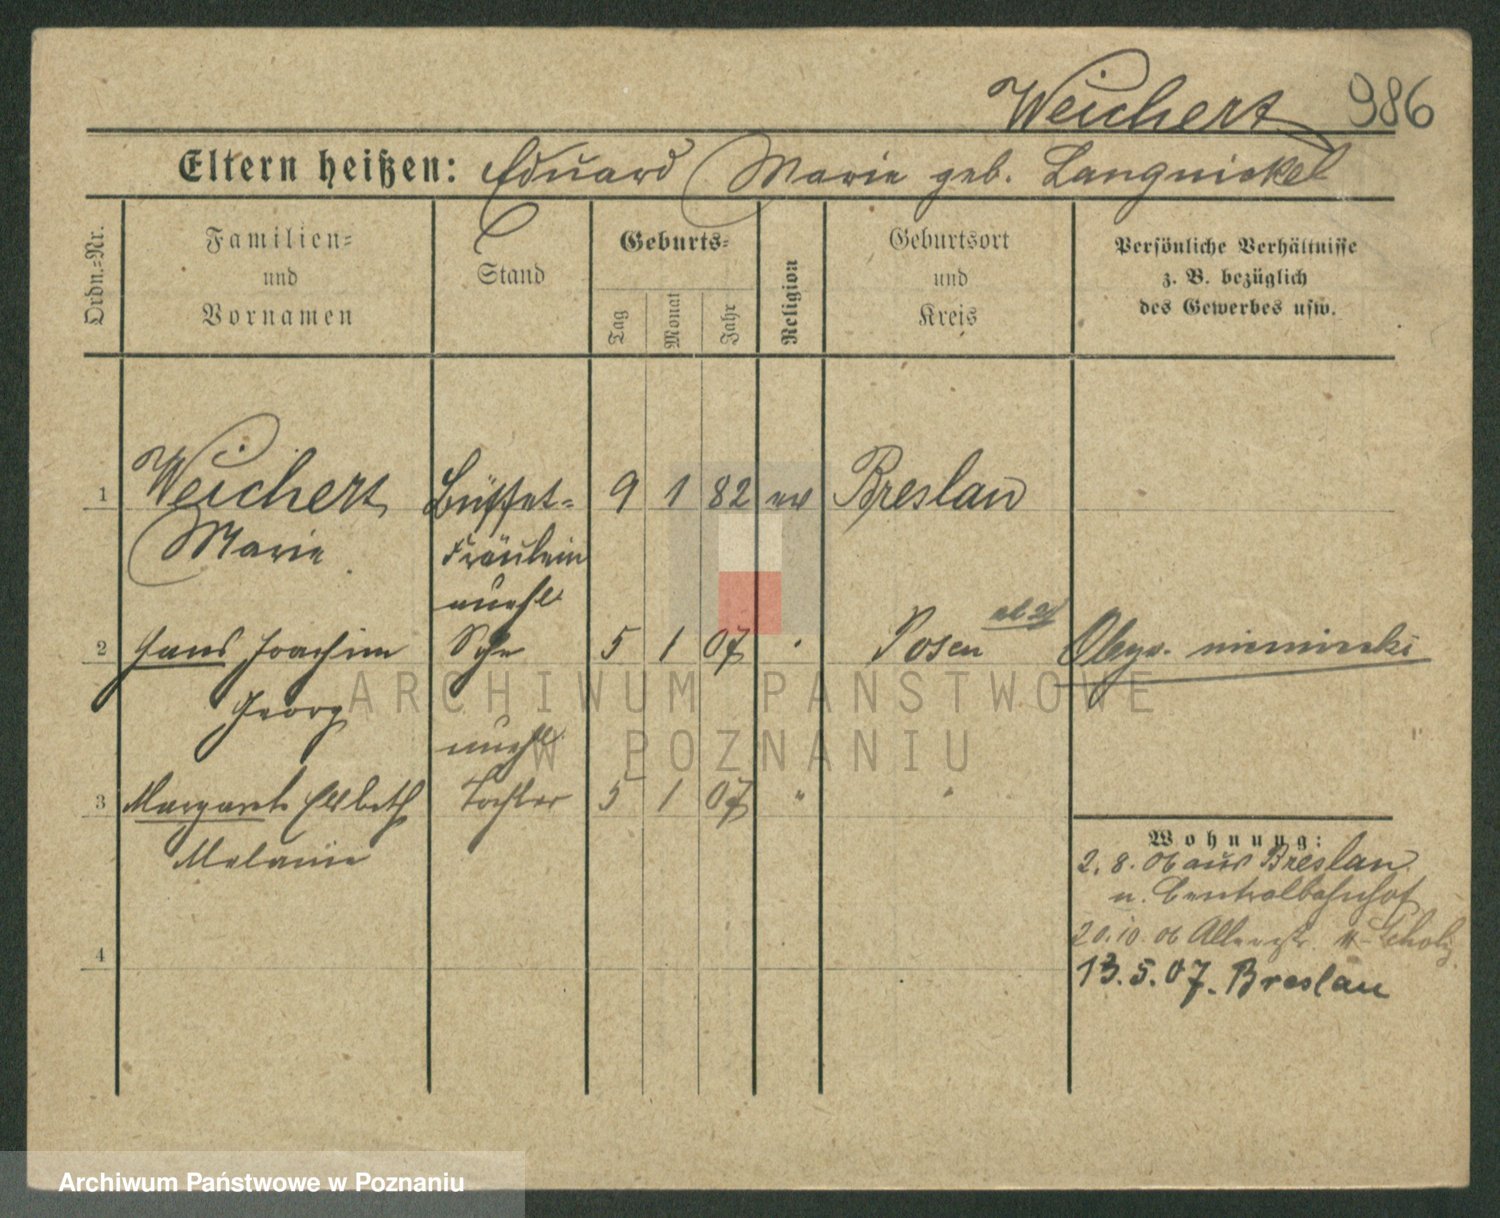 Weichert 986
Eltern heißen: Eduard Marie geb. Langnickel
Ordn.=Nr.
Familien=
und
Vornamen
Stand
Geburts=
Tag
Monat
Jahr
Religion
Geburtsort
und
Kreis
Persönliche Verhältnisse
z. B. bezüglich
des Gewerbes usw.
1 Weichert Büffet= 9 1 82 ev Breslau
Marie Fräulein
unehl
2 Hans Joachim Sohn 5 1 07 " Posen Obyw. niemiecki
Georg
unehl
3 Margarete Elsbeth Tochter 5 1 07 " "
Melanie
4
Wohnung:
2.8.06 aus Breslau
n. Centralbahnhof
20.10.06 Scholz
13.5.07. Breslau
ARCHIWUM PAŃSTWOWE
W POZNANIU
Archiwum Państwowe w Poznaniu